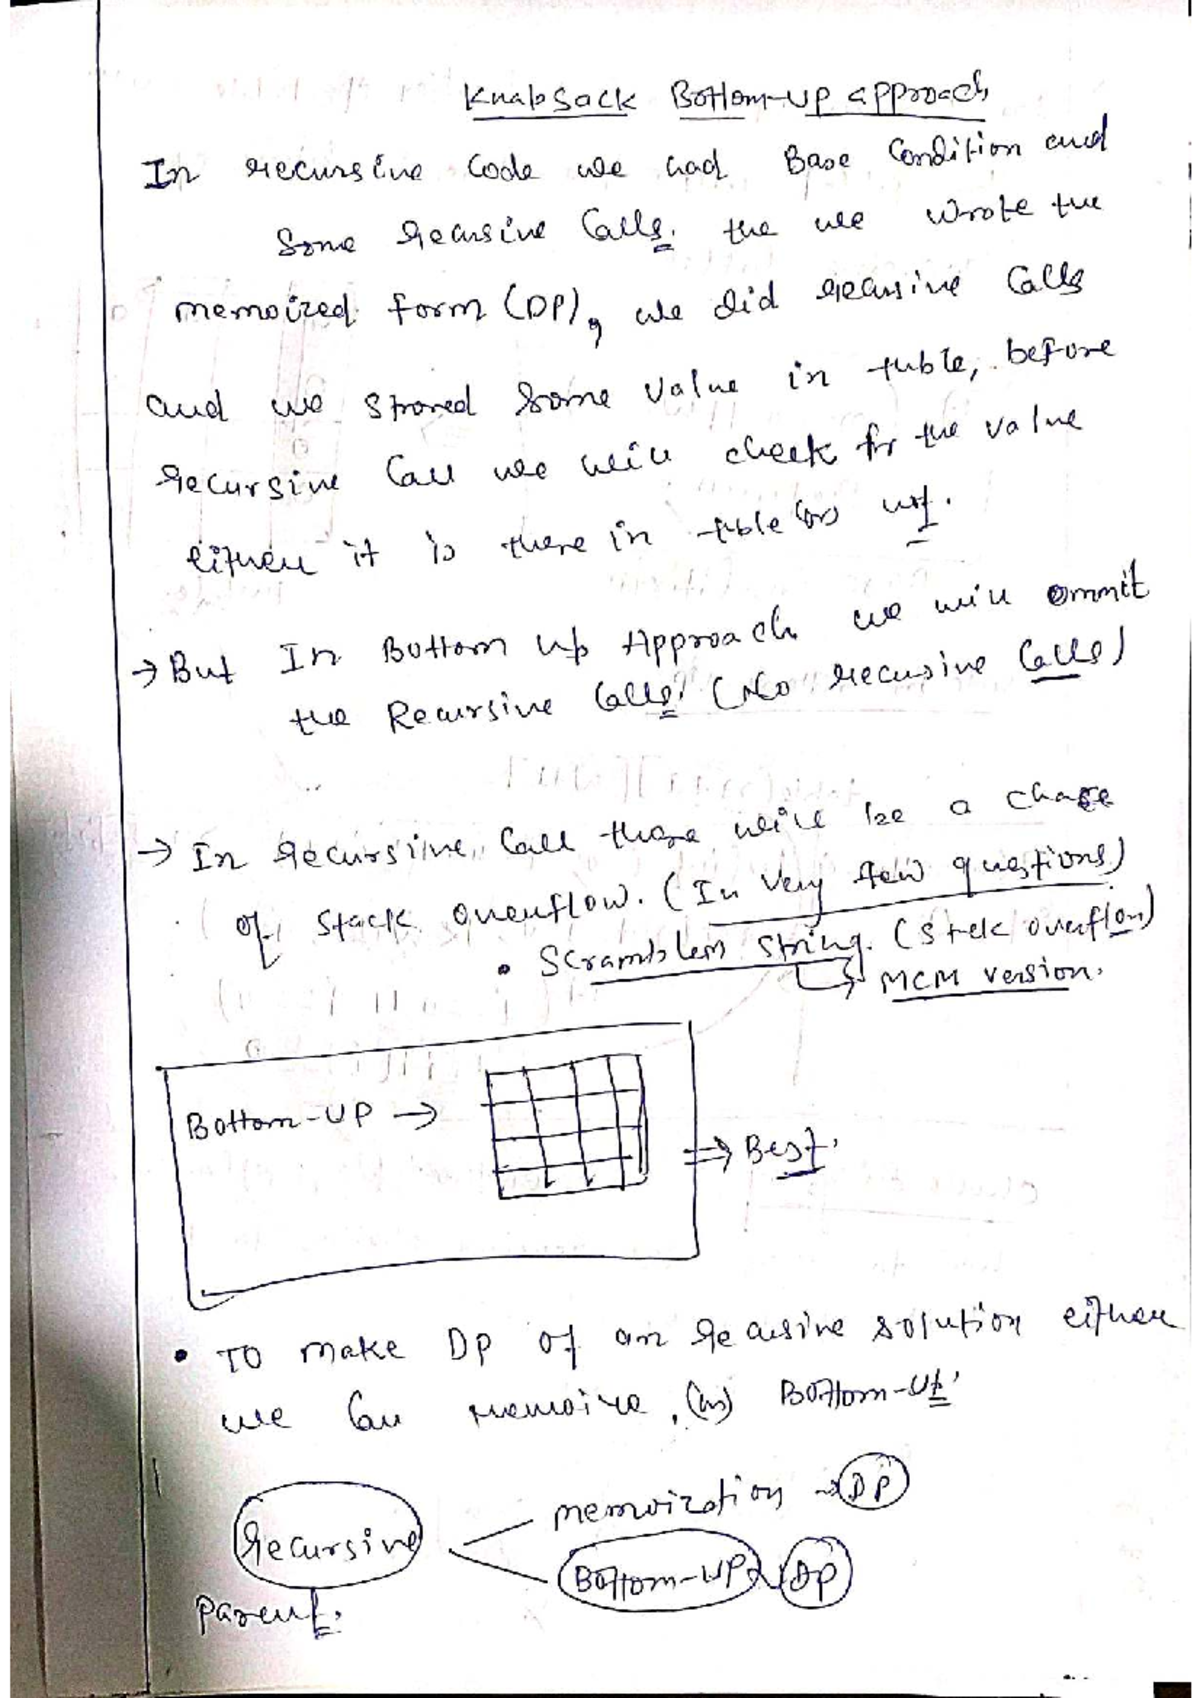 Knapsack Bottom-up approach
In recursive Code we had Base Condition and
Some Recursive Calls. the we wrote the
memoized form (DP), we did recursive Calls
and we stored some value in table, before
Recursive Call we will check for the value
either it is there in table (or) not.
→ But In Bottom up Approach we will ommit
the Recursive Calls. (No recursive Calls)
→ In Recursive Call there will be a chance
of stack overflow. (In very few questions)
• Scrambled string. (Stack overflow)
MCM version.
Bottom-UP →
⇒ Best.
• TO make DP of an Recursive solution either
we Can memoize (or) Bottom-up.
Recursive
memoization → DP
Bottom-UP → DP
Parent.